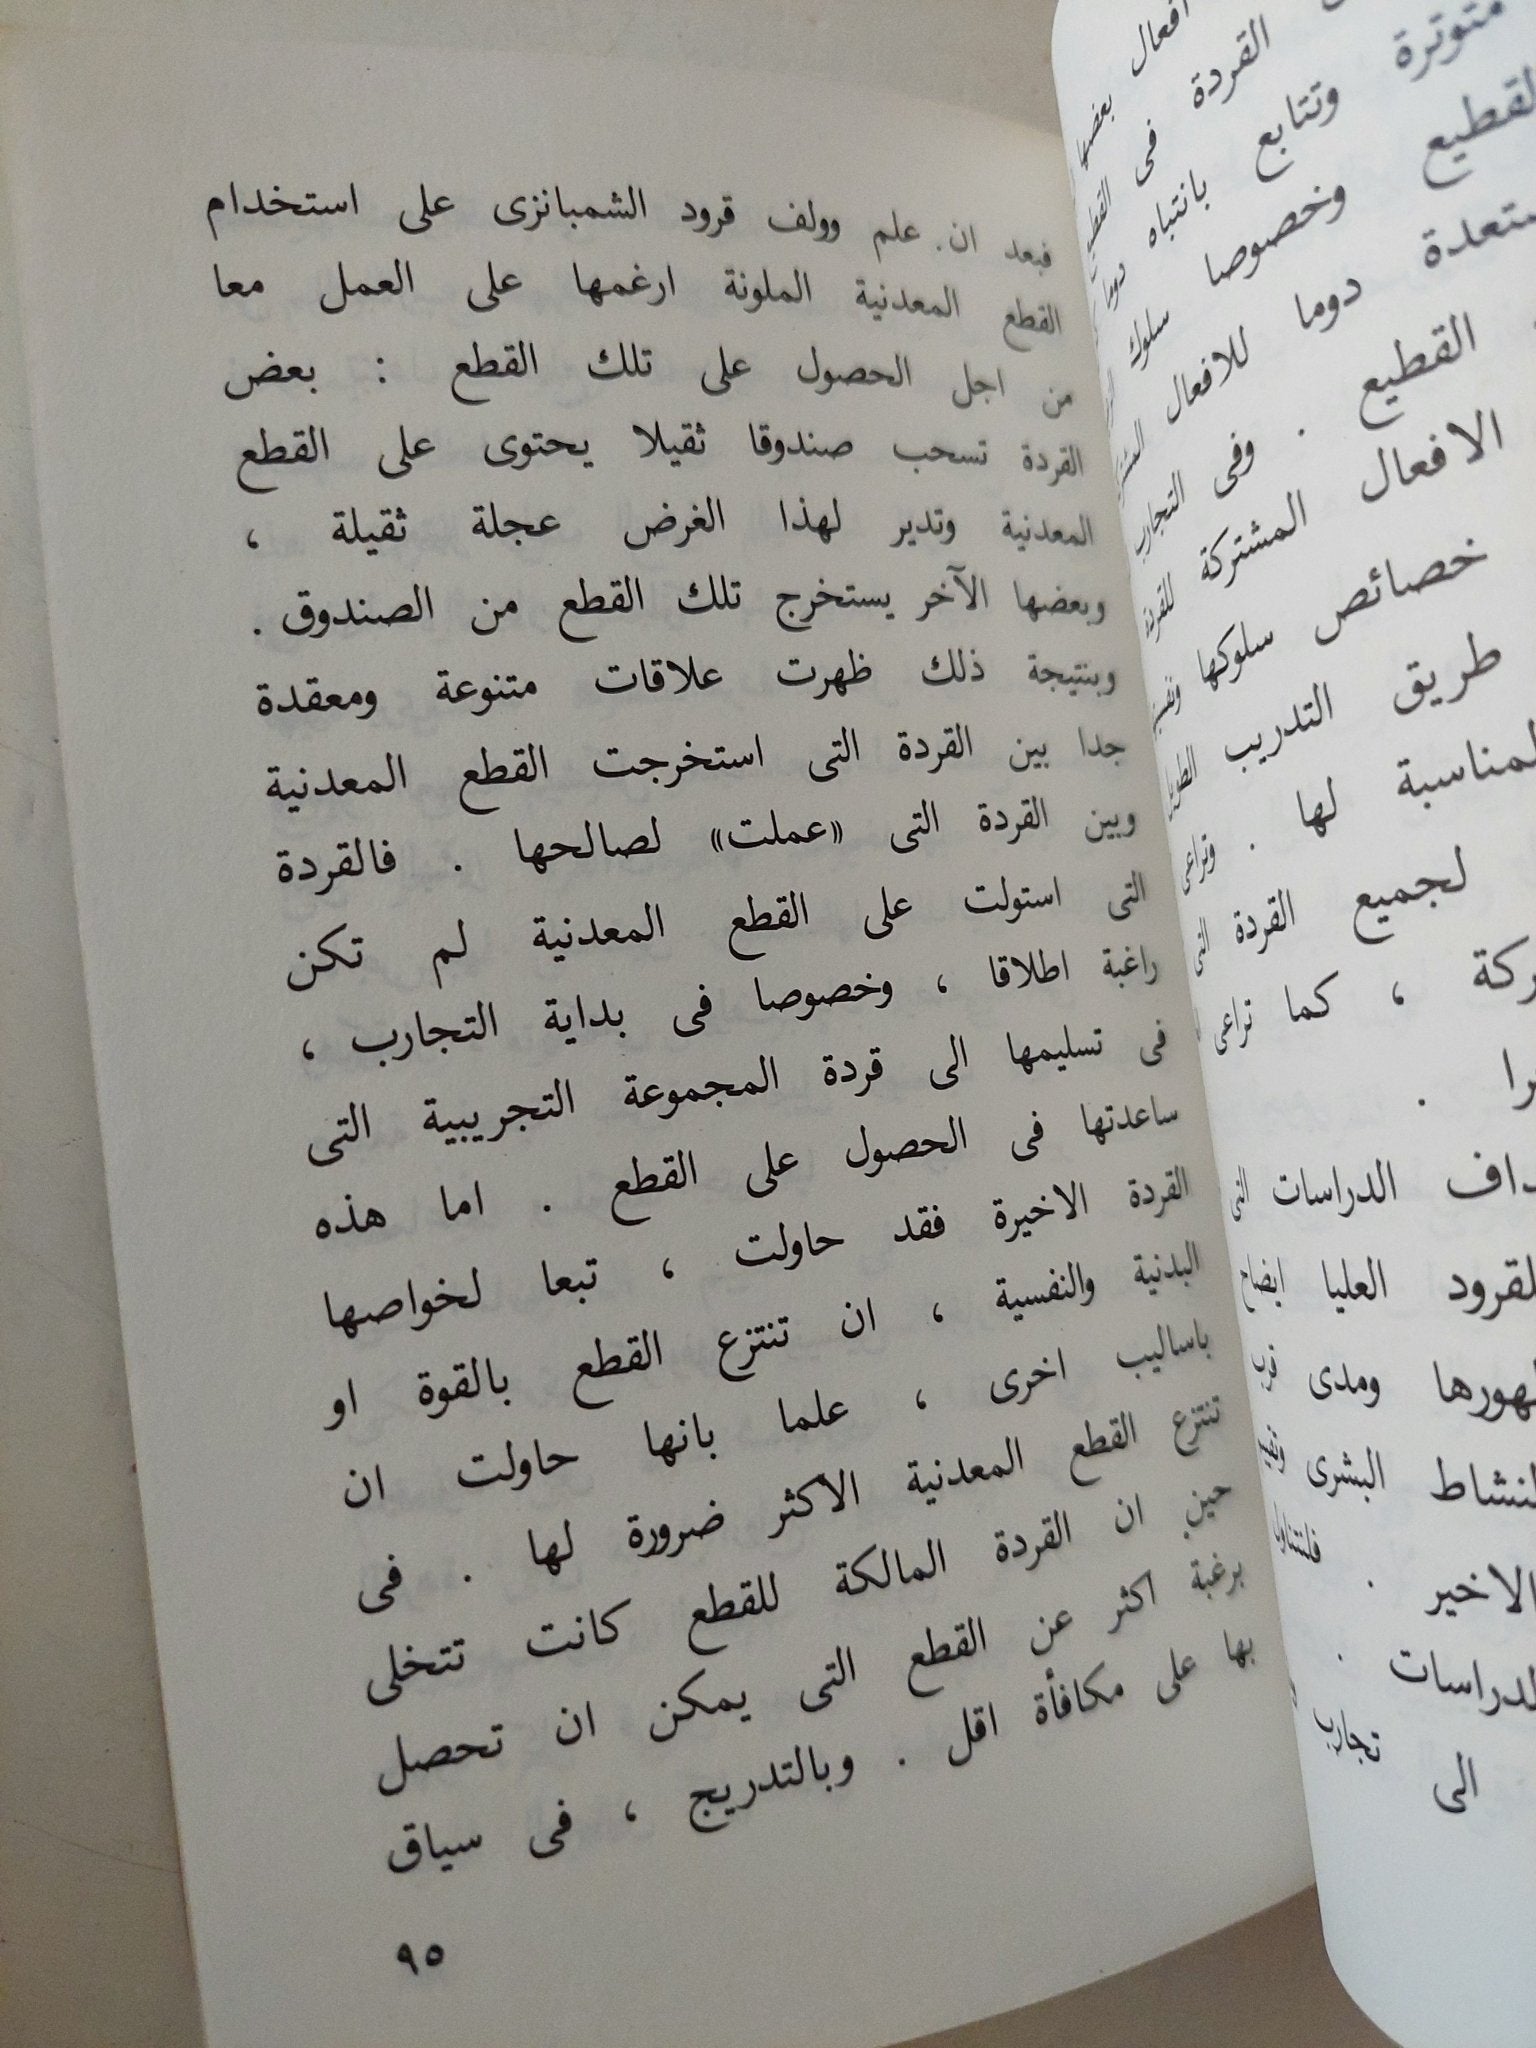 فبعد ان علم وولف قرود الشمبانزى على استخدام
القطع المعدنية الملونة ارغمها على العمل معا
من اجل الحصول على تلك القطع : بعض
القردة تسحب صندوقا ثقيلا يحتوى على القطع
المعدنية وتدير لهذا الغرض عجلة ثقيلة ،
وبعضها الآخر يستخرج تلك القطع من الصندوق .
وبنتيجة ذلك ظهرت علاقات متنوعة ومعقدة
جدا بين القردة التى استخرجت القطع المعدنية
وبين القردة التى «عملت» لصالحها . فالقردة
التى استولت على القطع المعدنية لم تكن
راغبة اطلاقا ، وخصوصا فى بداية التجارب ،
فى تسليمها الى قردة المجموعة التجريبية التى
ساعدتها فى الحصول على القطع . اما هذه
القردة الاخيرة فقد حاولت ، تبعا لخواصها
البدنية والنفسية ، ان تنتزع القطع بالقوة او
باساليب اخرى ، علما بانها حاولت ان
تنتزع القطع المعدنية الاكثر ضرورة لها . فى
حين ان القردة المالكة للقطع كانت تتخلى
برغبة اكثر عن القطع التى يمكن ان تحصل
بها على مكافأة اقل . وبالتدريج ، فى سياق
٩٥
افعال بعضها
القردة فى القطيع
متوترة وتتابع بانتباه دوما
القطيع وخصوصا سلوك
دوما للافعال
القطيع . وفى التجارب
الافعال المشتركة للقردة
خصائص سلوكها
طريق التدريب الطويل
لها . وتراعى
لجميع القردة التى
، كما تراعى
.
الدراسات التى
العليا ايضاح
ومدى قرب
البشرى
الاخير . فلنتناول
.
الى تجارب